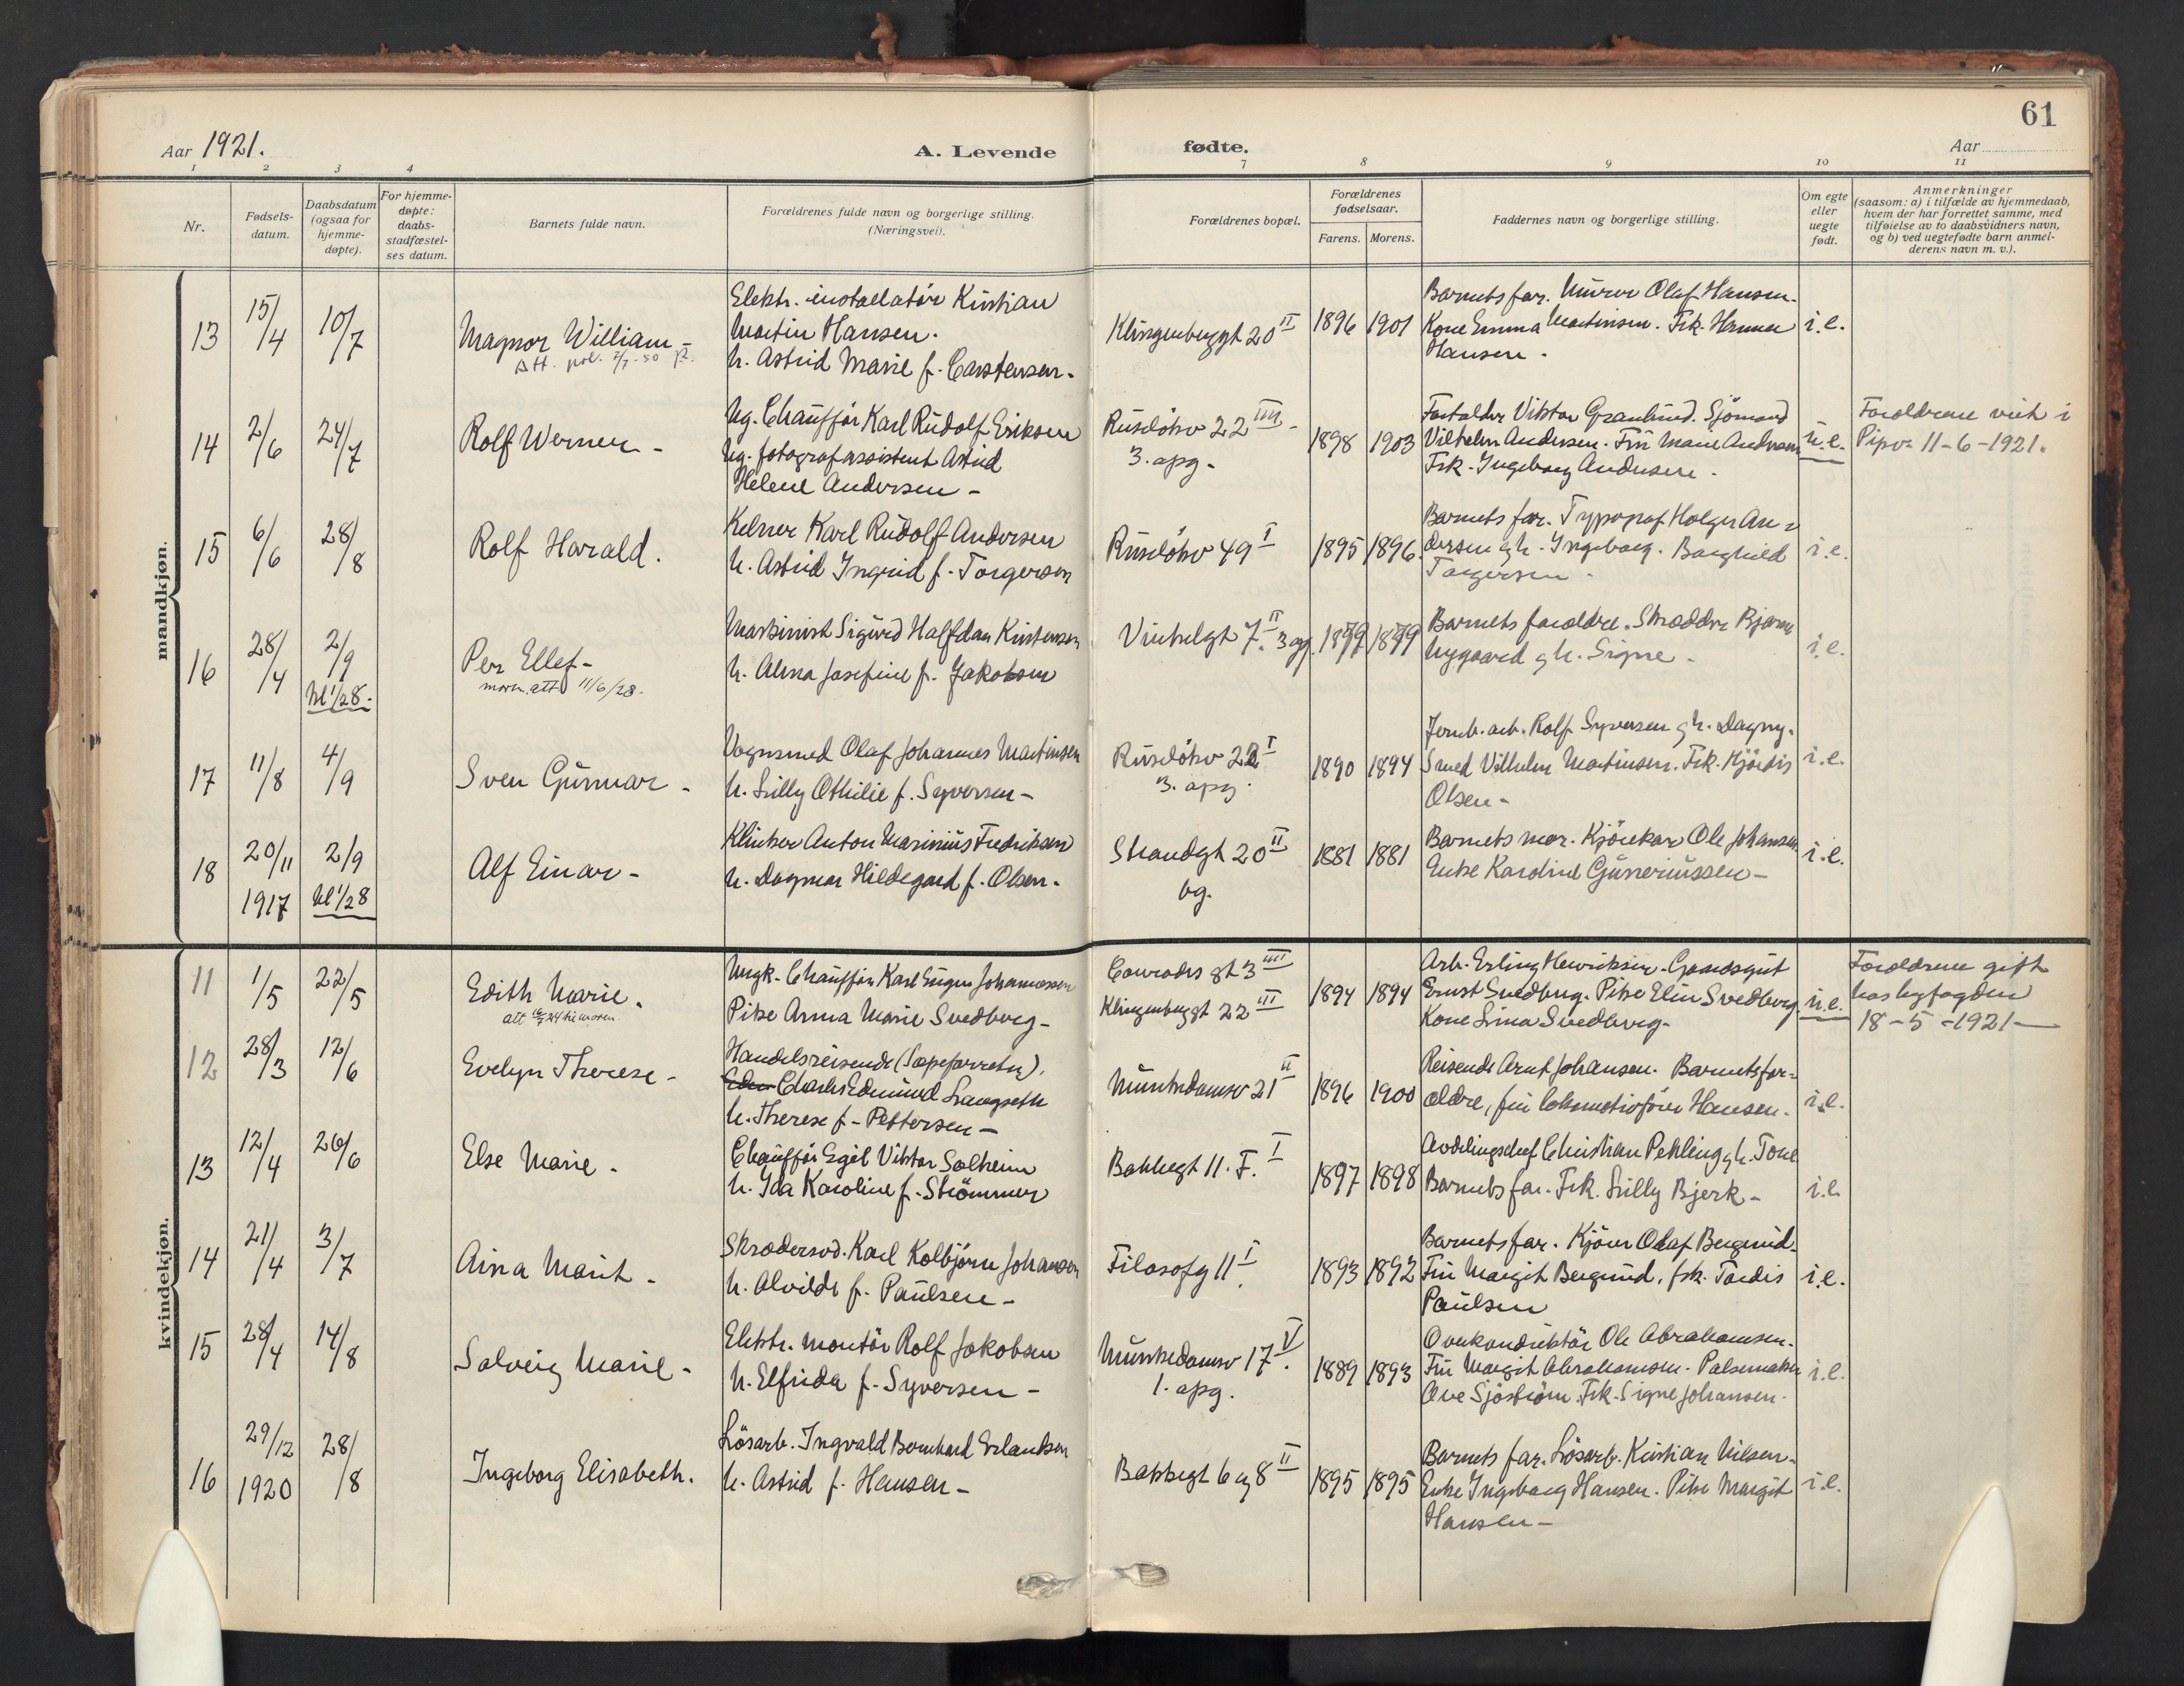 61
Aar 1921.
A. Levende
fødte.
Aar
1 2 3 4 7 8 9 10 11
Nr.
Fødsels-
datum.
Daabsdatum
(ogsaa for
hjemme-
døpte).
For hjemme-
døpte:
daabs-
stadfæstel-
ses datum.
Barnets fulde navn.
Forældrenes fulde navn og borgerlige stilling.
(Næringsvei).
Forældrenes bopæl.
Forældrenes
fødselsaar.
Farens. Morens.
Faddernes navn og borgerlige stilling.
Om egte
eller
uegte
født.
Anmerkninger
(saasom: a) i tilfælde av hjemmedaab,
hvem der har forrettet samme, med
tilføielse av to daabsvidners navn,
og b) ved uegtefødte barn anmel-
derens navn m. v.).
mandkjøn.
13
15/4
10/7
Magnor William -
Elektr. installatör Kristian
Martin Hansen.
h. Astrid Marie f. Carstensen.
Klingenberggt 20 II
1896 1901
Barnets far. Murer Olaf Hansen.
Kone Emma Martinsen. Frk. Hanna
Hansen.
i.e.
14
2/6
24/7
Rolf Werner -
Ug. Chaufför Karl Rudolf Eriksen
Ug. fotografassistent Astrid
Helene Andersen -
Ruselökv 22 IIII -
3. opg.
1898 1903
Viktor Granlund. Sjömand
Vilhelm Andersen. Fru Marie Andersen
Frk. Ingeborg Andersen.
u.e.
Forældrene viet i
Pipv. 11-6-1921.
15
6/6
28/8
Rolf Harald.
Kelner Karl Rudolf Andersen
h. Astrid Ingrid f. Torgersen
Ruselökv 49 I
1895 1896.
Barnets far. Typograf Holger An-
dersen og h. Ingeborg. Borghild
Torgersen.
i.e.
16
28/4
2/9
kl 1/28.
Per Ellef -
moren att 11/6/28.
Maskinist Sigurd Halfdan Kristensen
h. Alma Josefine f. Jakobsen
Vinkelgt 7. II 3 og.
1899 1899
Barnets forældre. Skrædder Bjarne
Nygaard og h. Signe -
i.e.
17
11/8
4/9
Sven Gunnar -
Vognmand Olaf Johannes Martinsen
h. Lilly Othilie f. Syversen -
Ruselökv 22 I
3. opg.
1890 1894
Jernb. arb. Rolf Syversen og h. Dagny.
Smed Vilhelm Martinsen. Frk. Hjördis
Olsen -
i.e.
18
20/11
1917
2/9
kl 1/28
Alf Einar -
Klinker Anton Marinius Fredriksen
h. Dagmar Hildegard f. Olsen.
Strandgt 20 II
bg.
1881 1881
Barnets mor. Kjörekar Ole Johansen.
Enke Karoline Gunneriussen -
i.e.
kvindekjøn.
11
1/5
22/5
Edith Marie.
Ungk. Chaufför Karl Eugen Johannessen
Pike Anna Marie Svedberg -
Conrades gt 3 IIII
Klingenberggt 22 III
1894 1894
Arb. Erling Henriksen. Gaardsgut
Ernst Svedberg. Pike Elin Svedberg.
Kone Lina Svedberg -
u.e.
Forældrene gift
hos byfogden
18-5-1921 -
12
28/3
12/6
Evelyn Therese -
Handelsreisende (Sæpeforretn).
Charles Edmund Langseth
h. Therese f. Pettersen -
Munkedamsv 21 II
1896 1900
Reisende Arnt Johansen. Barnets for-
ældre, fru lokomotivförer Hansen.
i.e.
13
12/4
26/6
Else Marie -
Chaufför Egil Viktor Solheim
h. Ida Karoline f. Strömmen
Bakkegt 11. F. I
1897 1898
Avdelingschef Christian Pehling og h. Tone
Barnets far. Frk. Lilly Bjerk -
i.e.
14
21/4
3/7
Aina Marit -
Skrædersvd. Karl Kolbjörn Johansen
h. Alvilde f. Paulsen -
Filosofg 11 I
1893 1892
Barnets far. Kjörer Olaf Berglund.
Fru Margit Berglund, frk. Tordis
Paulsen
i.e.
15
28/4
14/8
Solveig Marie -
Elektr. montör Rolf Jakobsen
h. Elfrida f. Syversen -
Munkedamsv 17 V.
1. opg.
1889 1893
Overkonduktör Ole Abrahamsen.
Fru Margit Abrahamsen. Pølsemaker
Ove Sjöström. Frk. Signe Johansen.
i.e.
16
29/12
1920
28/8
Ingeborg Elisabeth.
Lösarb. Ingvald Bernhard Erlandsen
h. Astrid f. Hansen -
Bakkegt 6 og 8 II
1895 1895
Barnets far. Lösarb. Kristian Nilsen.
Enke Ingeborg Hansen. Pike Margit
Hansen -
i.e.